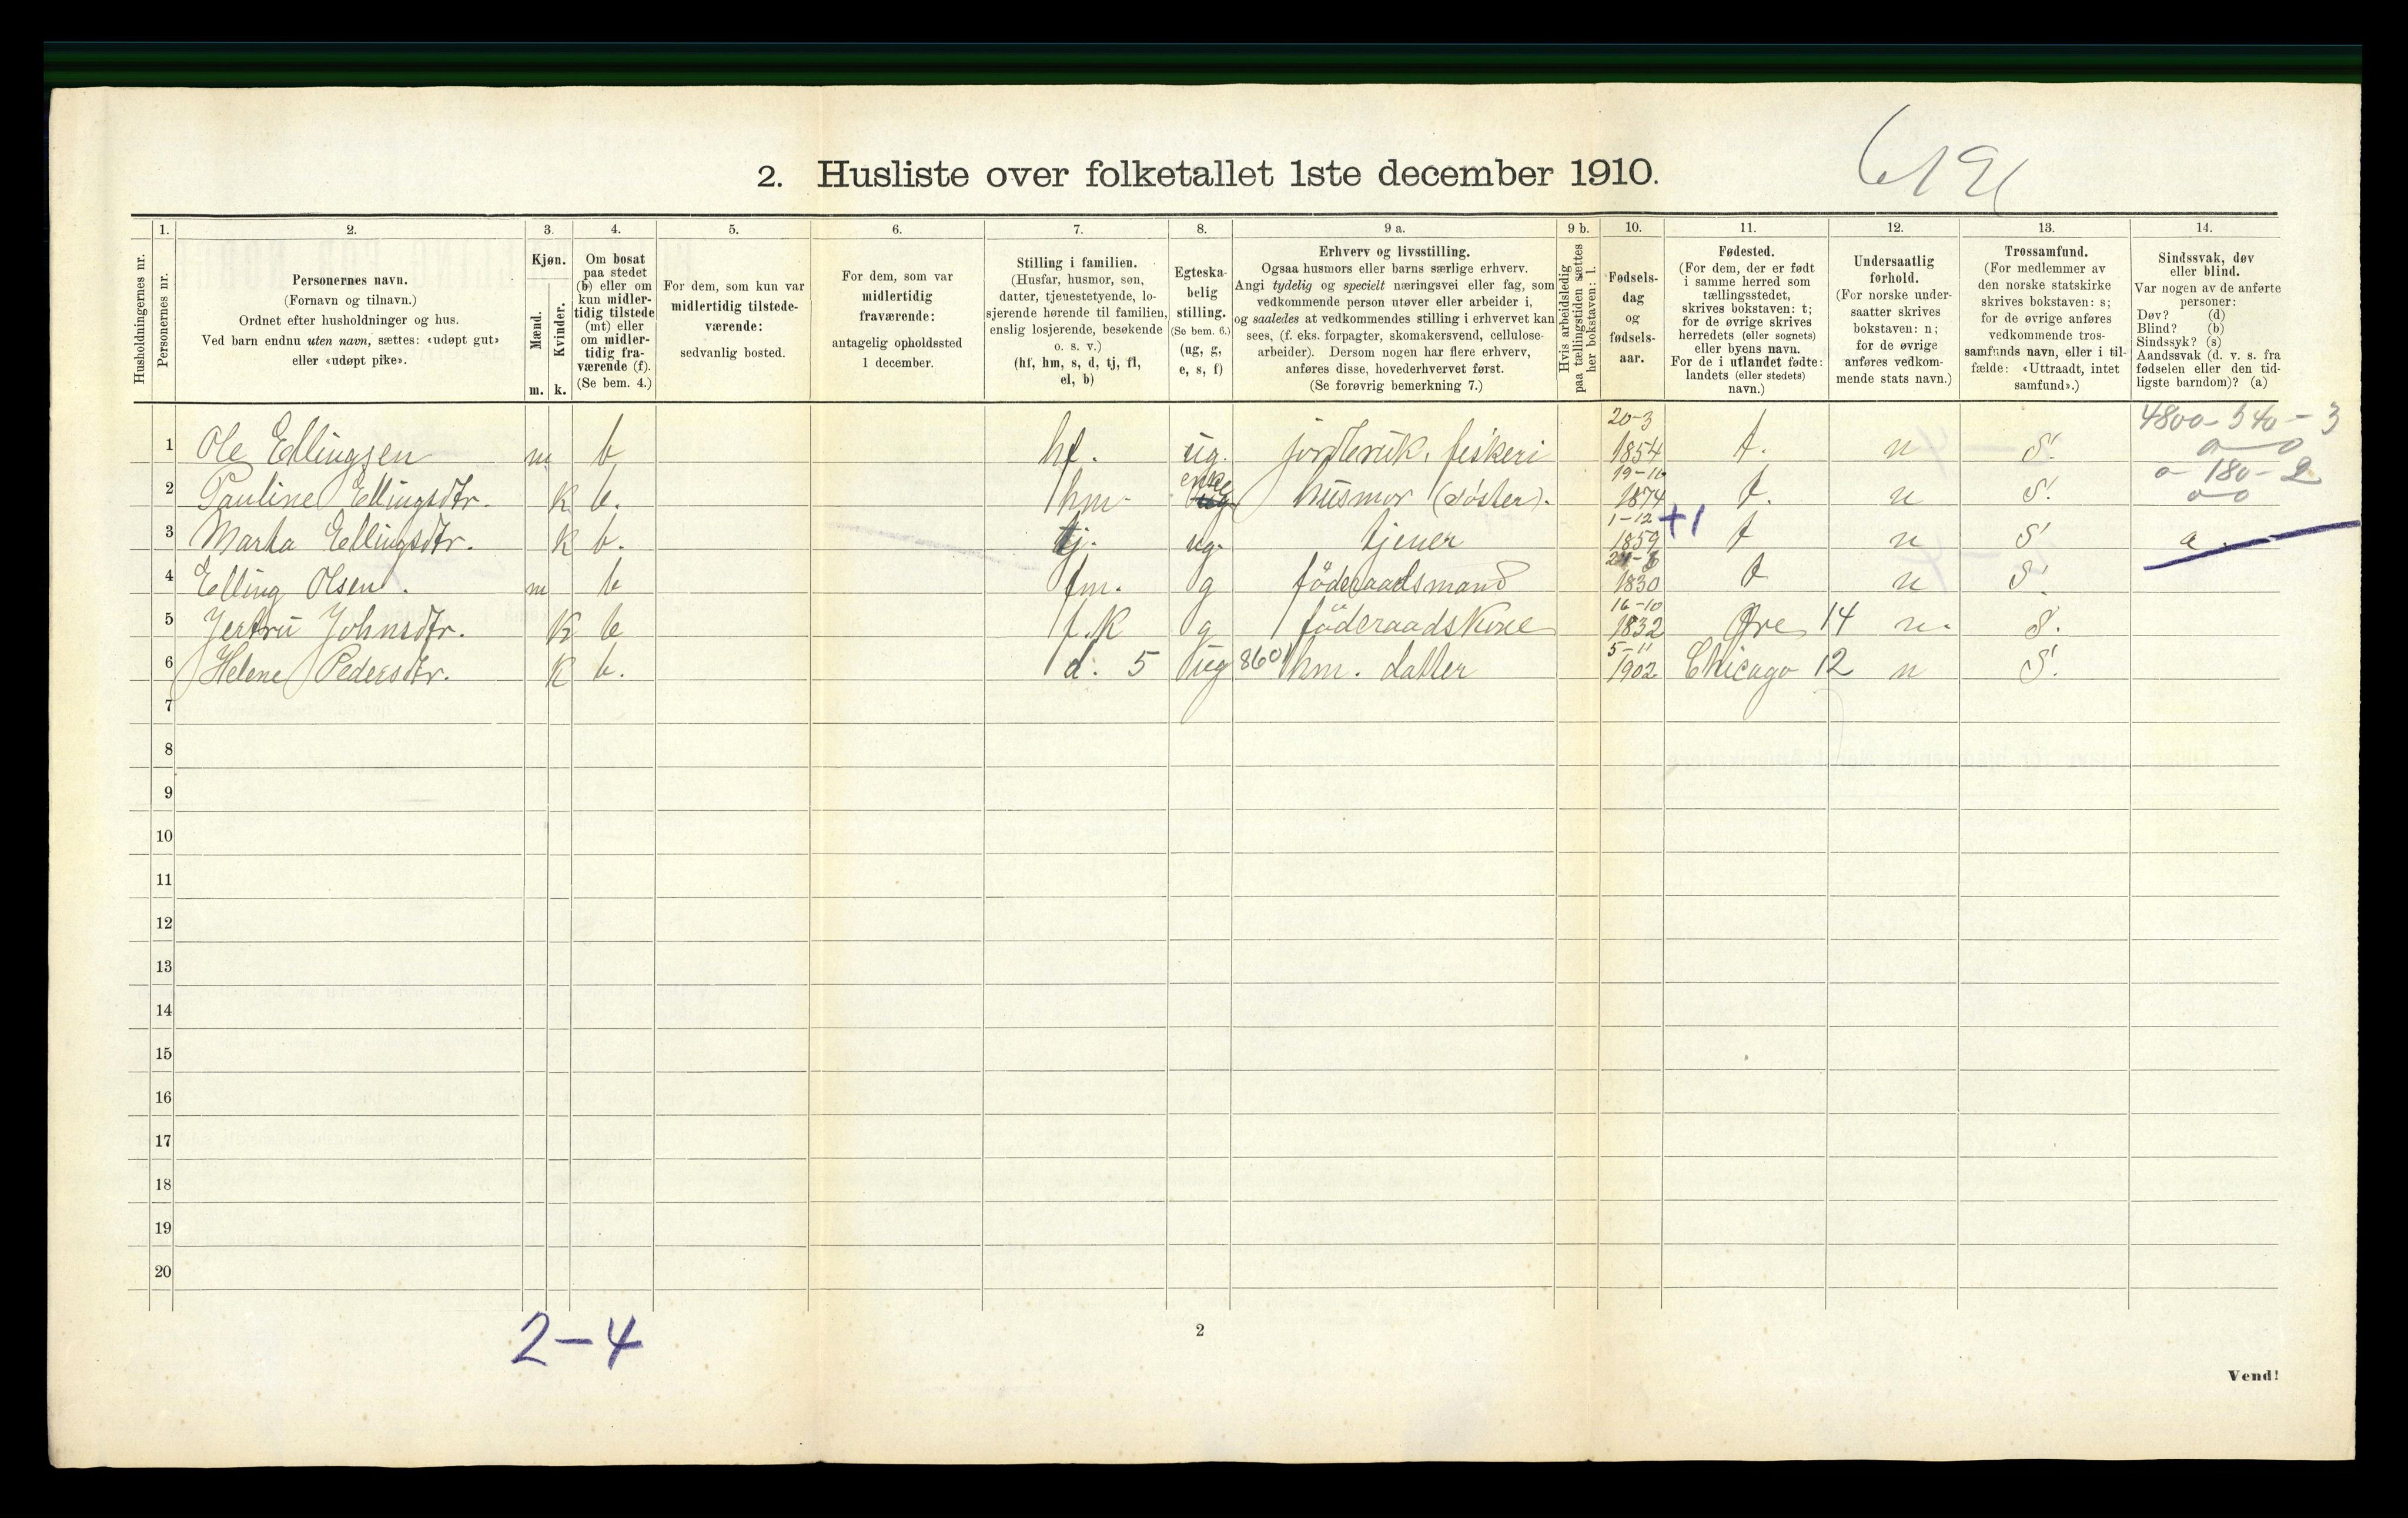 2. Husliste over folketallet 1ste december 1910.
Husholdningernes nr.
1. Personernes nr.
2. Personernes navn. (Fornavn og tilnavn.) Ordnet efter husholdninger og hus. Ved barn endnu uten navn, sættes: «udøpt gut» eller «udøpt pike».
3. Kjøn. Mænd. m. Kvinder. k.
4. Om bosat paa stedet (b) eller om kun midlertidig tilstede (mt) eller om midlertidig fraværende (f). (Se bem. 4.)
5. For dem, som kun var midlertidig tilstedeværende: sedvanlig bosted.
6. For dem, som var midlertidig fraværende: antagelig opholdssted 1 december.
7. Stilling i familien. (Husfar, husmor, søn, datter, tjenestetyende, losjerende hørende til familien, enslig losjerende, besøkende o. s. v.) (hf, hm, s, d, tj, fl, el, b)
8. Egteskabelig stilling. (Se bem. 6.) (ug, g, e, s, f)
9 a. Erhverv og livsstilling. Ogsaa husmors eller barns særlige erhverv. Angi tydelig og specielt næringsvei eller fag, som vedkommende person utøver eller arbeider i, og saaledes at vedkommendes stilling i erhvervet kan sees, (f. eks. forpagter, skomakersvend, cellulosearbeider). Dersom nogen har flere erhverv, anføres disse, hovederhvervet først. (Se forøvrig bemerkning 7.)
9 b. Hvis arbeidsledig paa tællingstiden sættes her bokstaven: l.
10. Fødselsdag og fødselsaar.
11. Fødested. (For dem, der er født i samme herred som tællingsstedet, skrives bokstaven: t; for de øvrige skrives herredets (eller sognets) eller byens navn. For de i utlandet fødte: landets (eller stedets) navn.)
12. Undersaatlig forhold. (For norske undersaatter skrives bokstaven: n; for de øvrige anføres vedkommende stats navn.)
13. Trossamfund. (For medlemmer av den norske statskirke skrives bokstaven: s; for de øvrige anføres vedkommende trossamfunds navn, eller i tilfælde: «Uttraadt, intet samfund».)
14. Sindssvak, døv eller blind. Var nogen av de anførte personer: Døv? (d) Blind? (b) Sindssyk? (s) Aandssvak (d. v. s. fra fødselen eller den tidligste barndom)? (a)
4800-540-3
1 Ole Ellingsen m b hf. ug. jordbruk, fiskeri 20-3 1854 t. n S.
0-180-2
2 Pauline Ellingsdtr. k b. hm. enke husmor (söster). 19-11 1874 t. n S.
3 Marta Ellingsdtr. k b. tj. ug. tjener 1-12 1859 +1 t n S a.
4 Elling Olsen. m b fm. g föderaadsmand 1830 t n S.
5 Jertru Johnsdtr. k b f.k g föderaadskone 16-10 1832 Øre 14 n. S.
6 Helene Pedersdtr. k b. d. 5 ug 860 hm. datter 5-11 1902 Chicago 12 n S.
7
8
9
10
11
12
13
14
15
16
17
18
19
20
2-4
2
Vend!